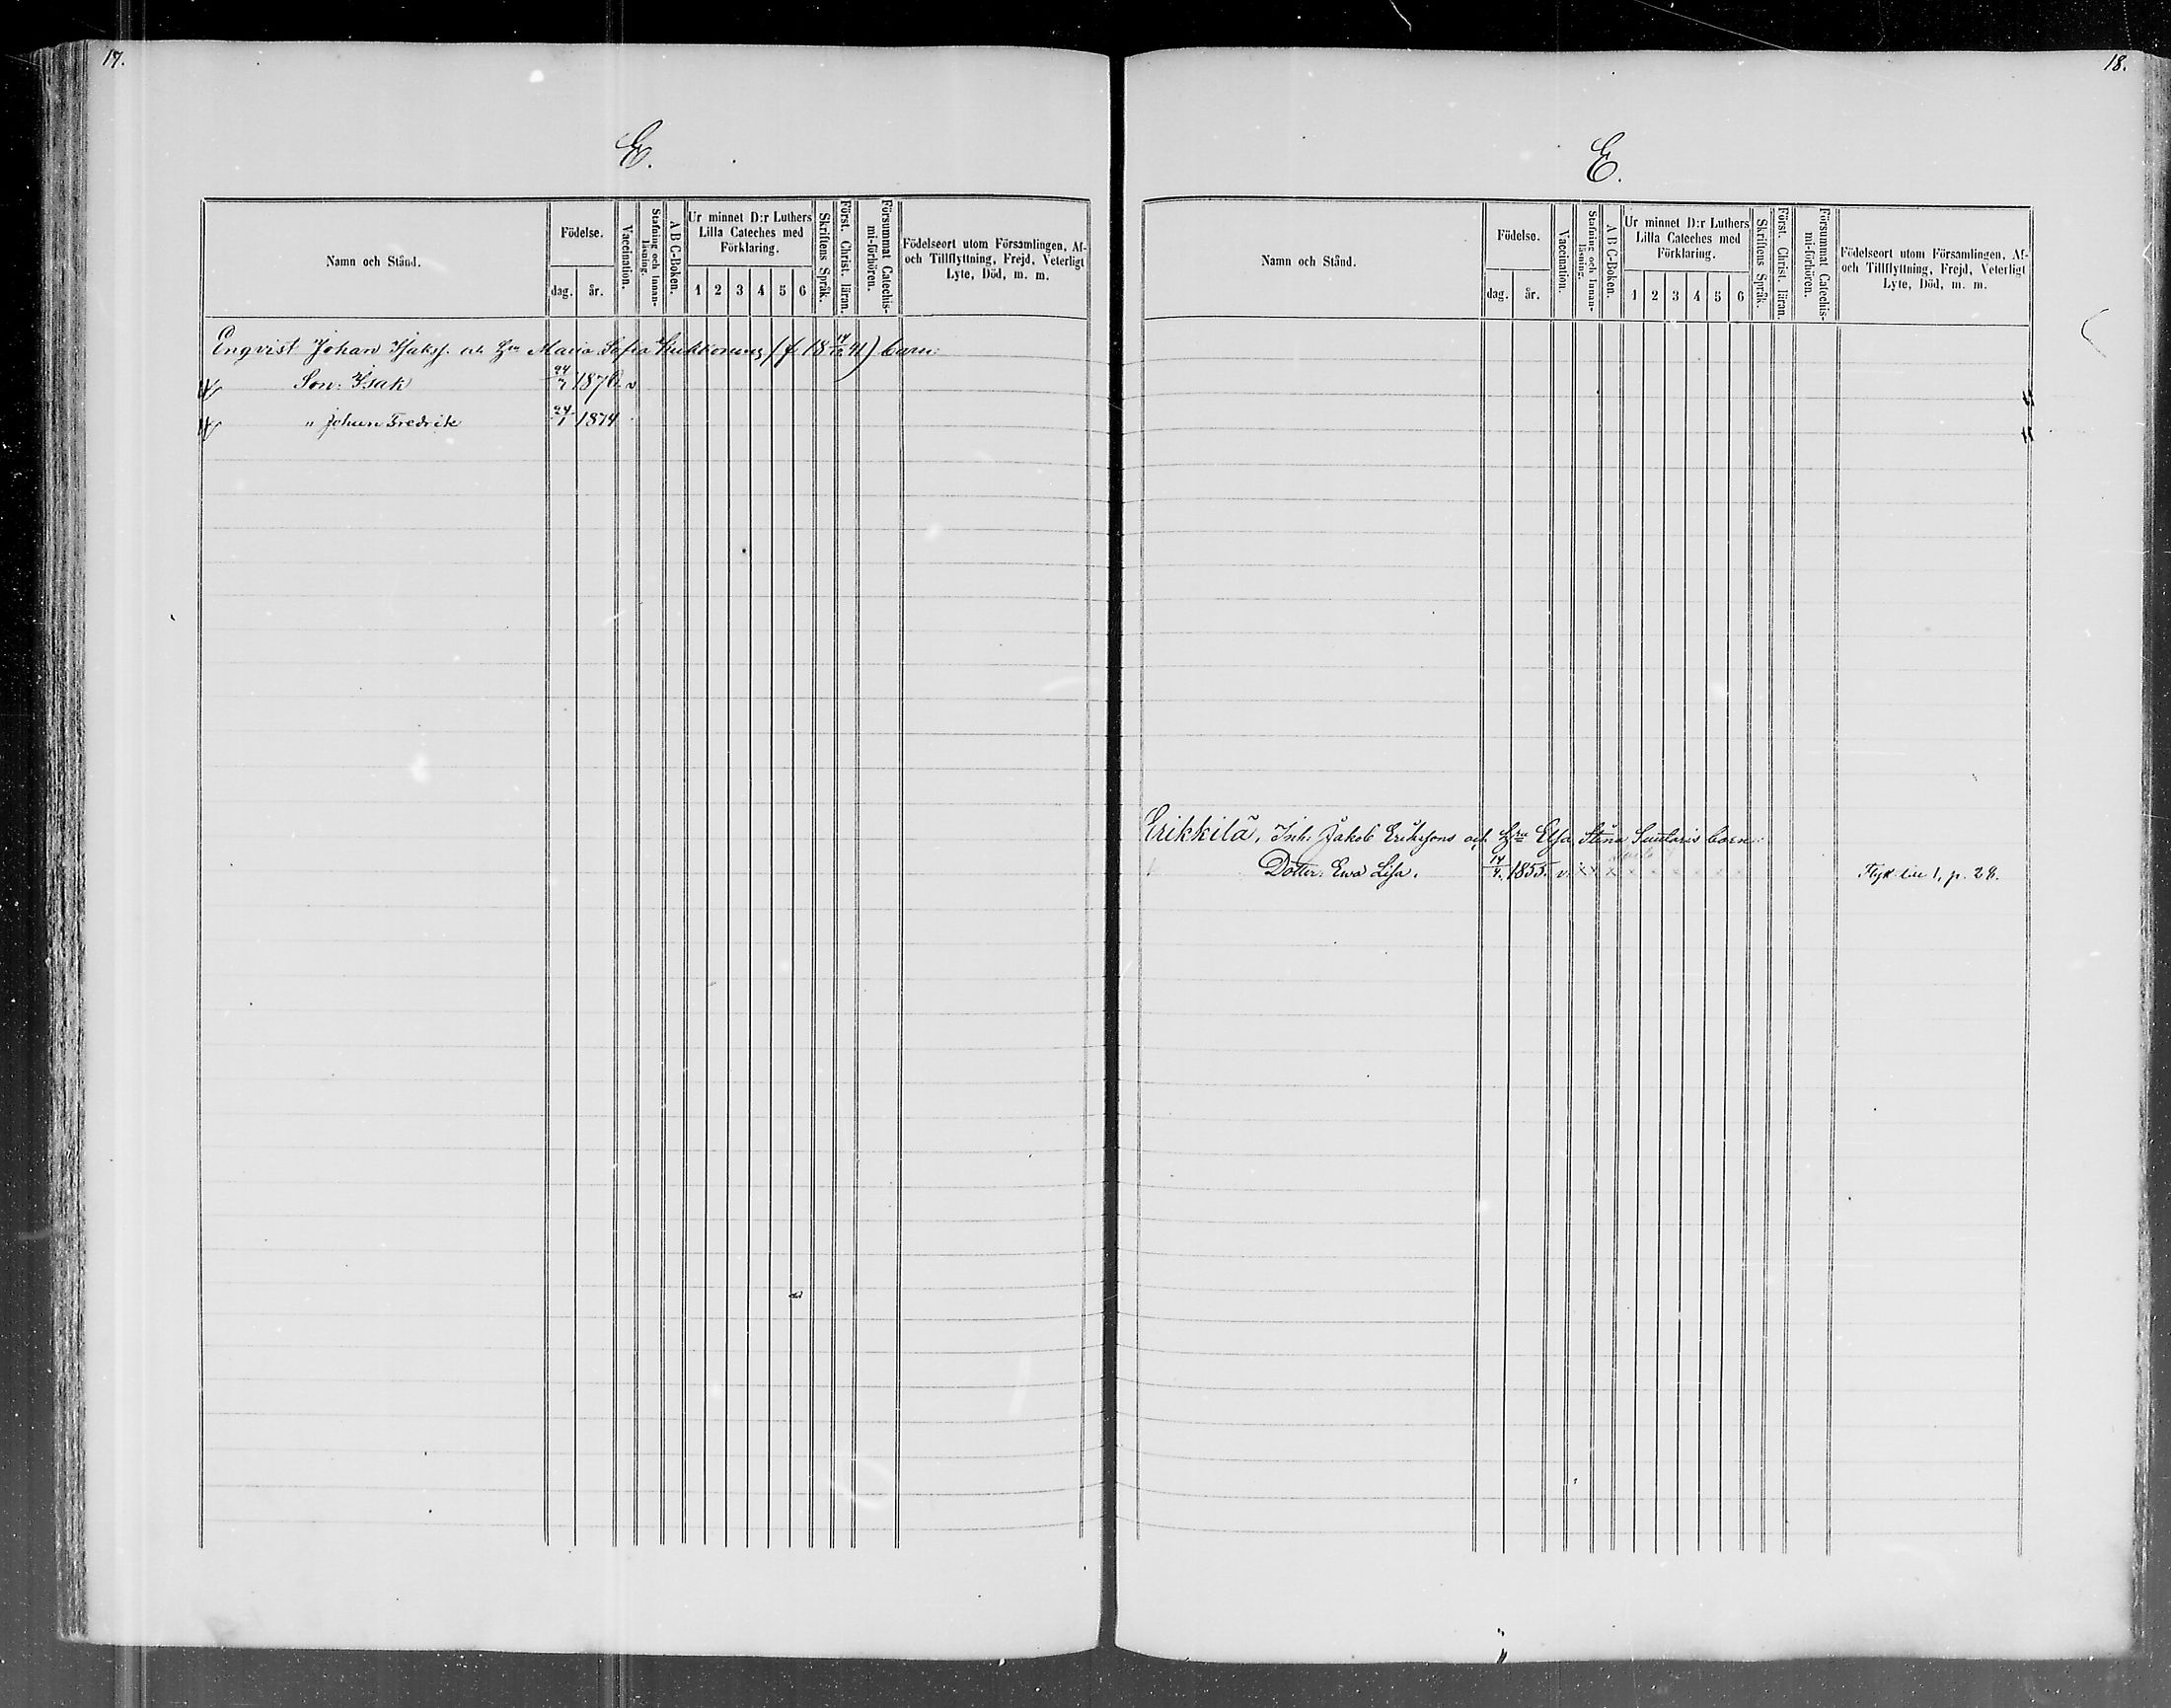 17.
E.
Namn och Stånd.
Födelse.
dag.
år.
Vaccination.
Stafning och Innan-läsning.
A B C-Boken.
Ur minnet D:r Luthers
Lilla Cateches med
Förklaring.
1 2 3 4 5 6
Skriftens Språk.
Först. Christ. läran.
Försummat Catechis-
mi-förhören.
Födelseort utom Församlingen, Af-
och Tillflyttning, Frejd, Veterligt
Lyte, Död, m. m.
Engvist Johan Isakss. och Hu Maria Sofia (f. 18 41) barn:
Son: Isak 24/7 1876 v
" Johan Fredrik 24/1 1874
18.
E.
Namn och Stånd.
Födelse.
dag.
år.
Vaccination.
Stafning och Innan-läsning.
A B C-Boken.
Ur minnet D:r Luthers
Lilla Cateches med
Förklaring.
1 2 3 4 5 6
Skriftens Språk.
Först. Christ. läran.
Försummat Catechis-
mi-förhören.
Födelseort utom Församlingen, Af-
och Tillflyttning, Frejd, Veterligt
Lyte, Död, m. m.
Erikkilä, Inh. Jakob Erikssons och Hu Elsa Stina barn:
Dotter: Ewa Lisa. 14/4. 1855. v. x x x x x x x x Flytt. 1, p. 28.